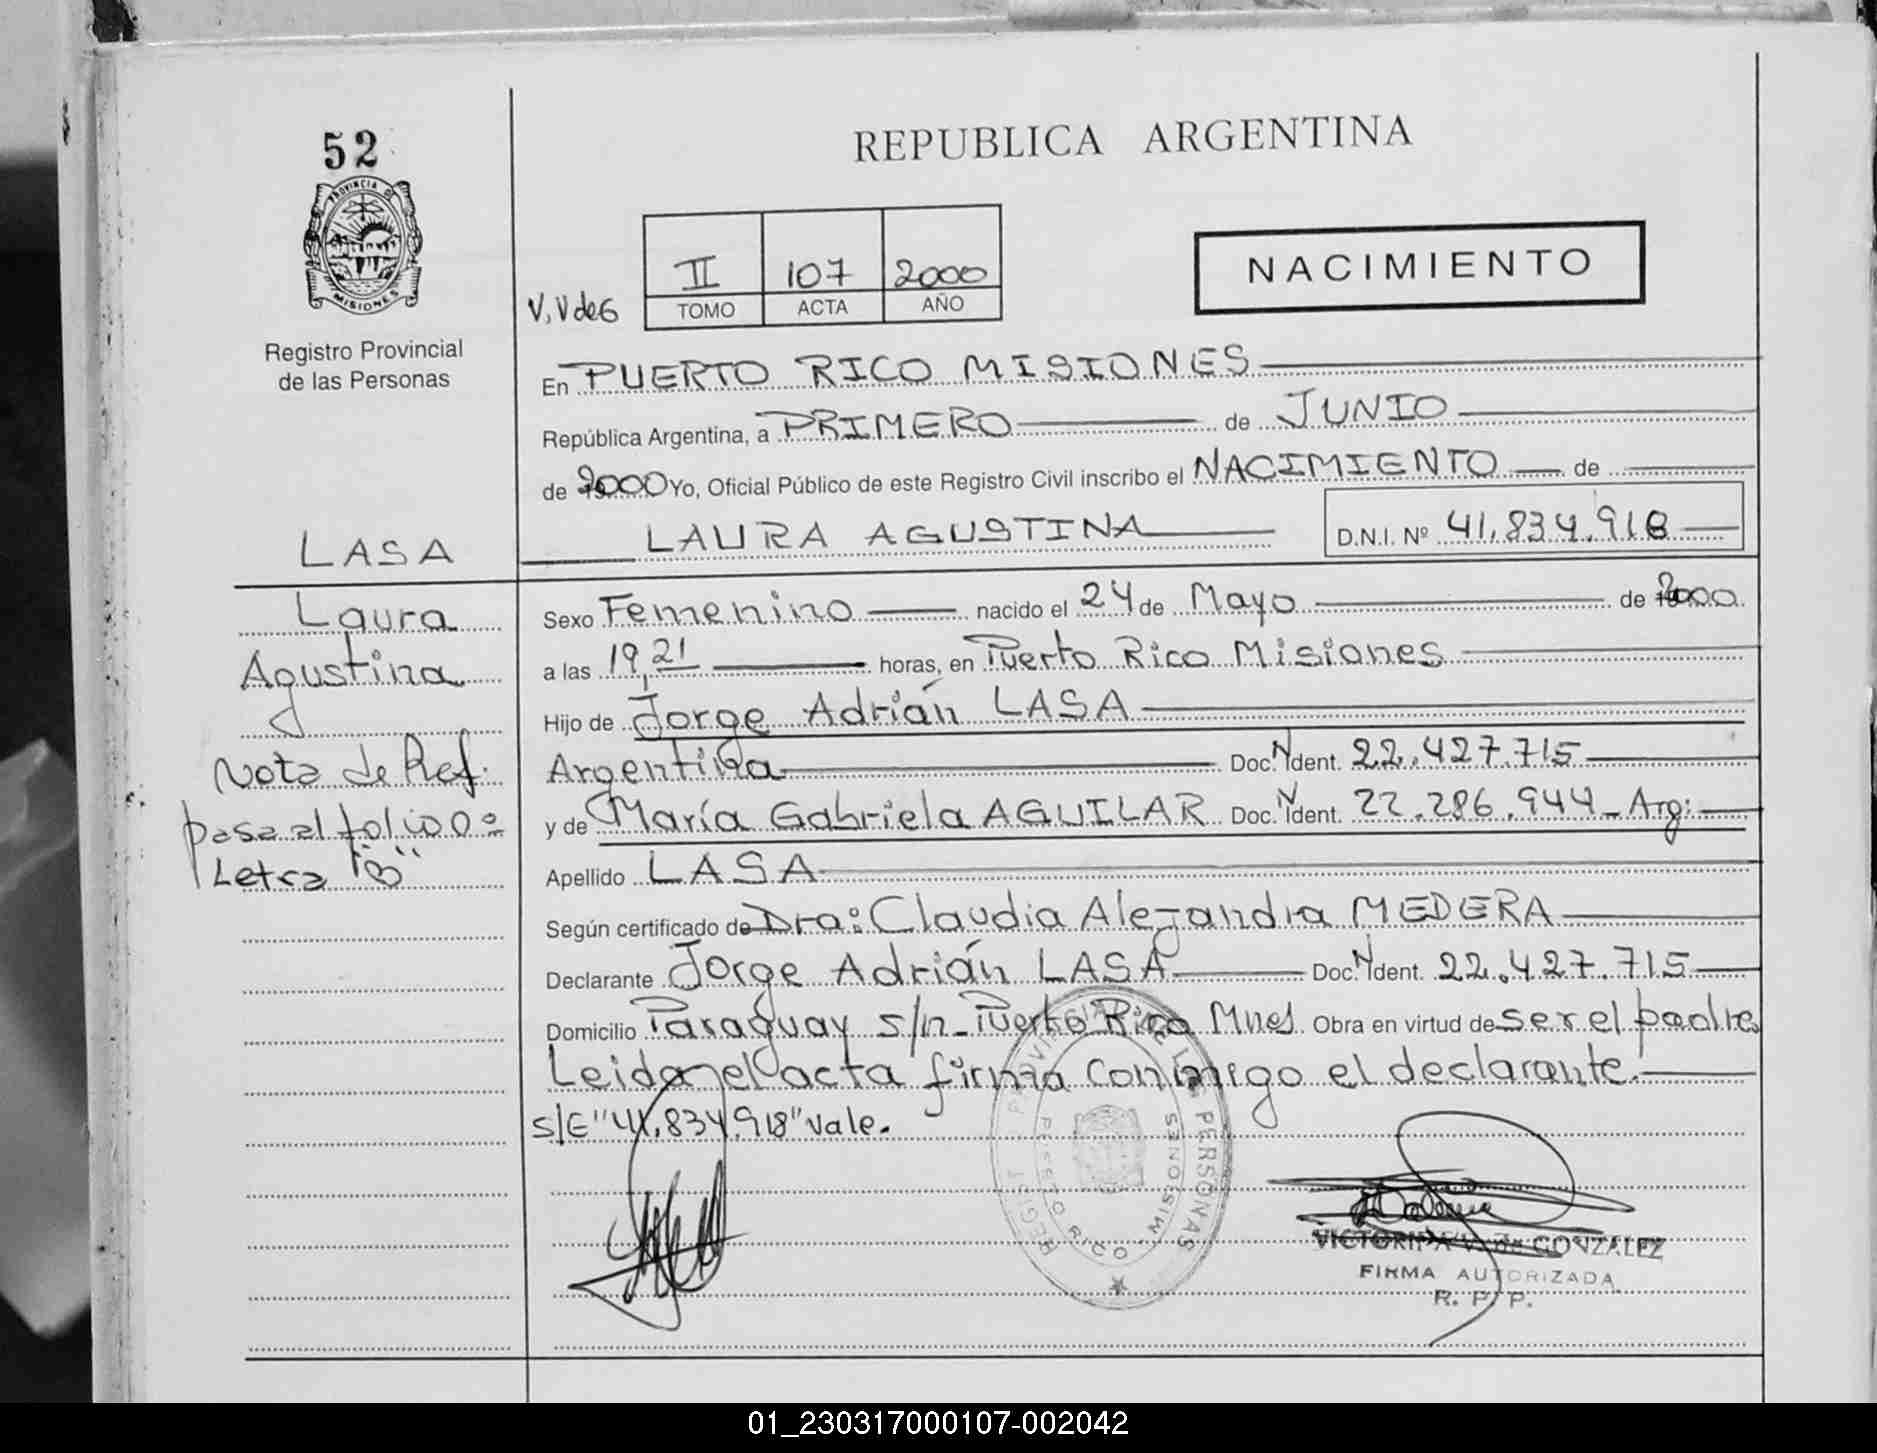 52
PROVINCIA DE MISIONES
Registro Provincial
de las Personas
REPUBLICA ARGENTINA
V, V de G
II 107 2000
TOMO ACTA AÑO
NACIMIENTO
En PUERTO RICO MISIONES
República Argentina, a PRIMERO de JUNIO
de 2000 Yo, Oficial Público de este Registro Civil inscribo el NACIMIENTO de
LAURA AGUSTINA D.N.I. Nº 41.834.918
LASA
Laura
Agustina
Nota de Ref.
pasa al folio 00
Letra "B"
Sexo Femenino nacido el 24 de Mayo de 2000
a las 19,21 horas, en Puerto Rico Misiones
Hijo de Jorge Adrián LASA
Argentina Doc. N Ident. 22.427.715
y de María Gabriela AGUILAR Doc. N Ident. 22.286.944 - Arg:
Apellido LASA
Según certificado de Dra: Claudia Alejandra MEDERA
Declarante Jorge Adrián LASA Doc. N Ident. 22.427.715
Domicilio Paraguay s/n - Puerto Rico Mnes Obra en virtud de ser el padre
Leida el acta firma conmigo el declarante.
S/E "41.834.918" Vale.
REGIST PROVINCIA DE LAS PERSONAS
PUERTO RICO - MISIONES
VICTORINA V. de GONZALEZ
FIRMA AUTORIZADA
R. P. P.
01_230317000107-002042